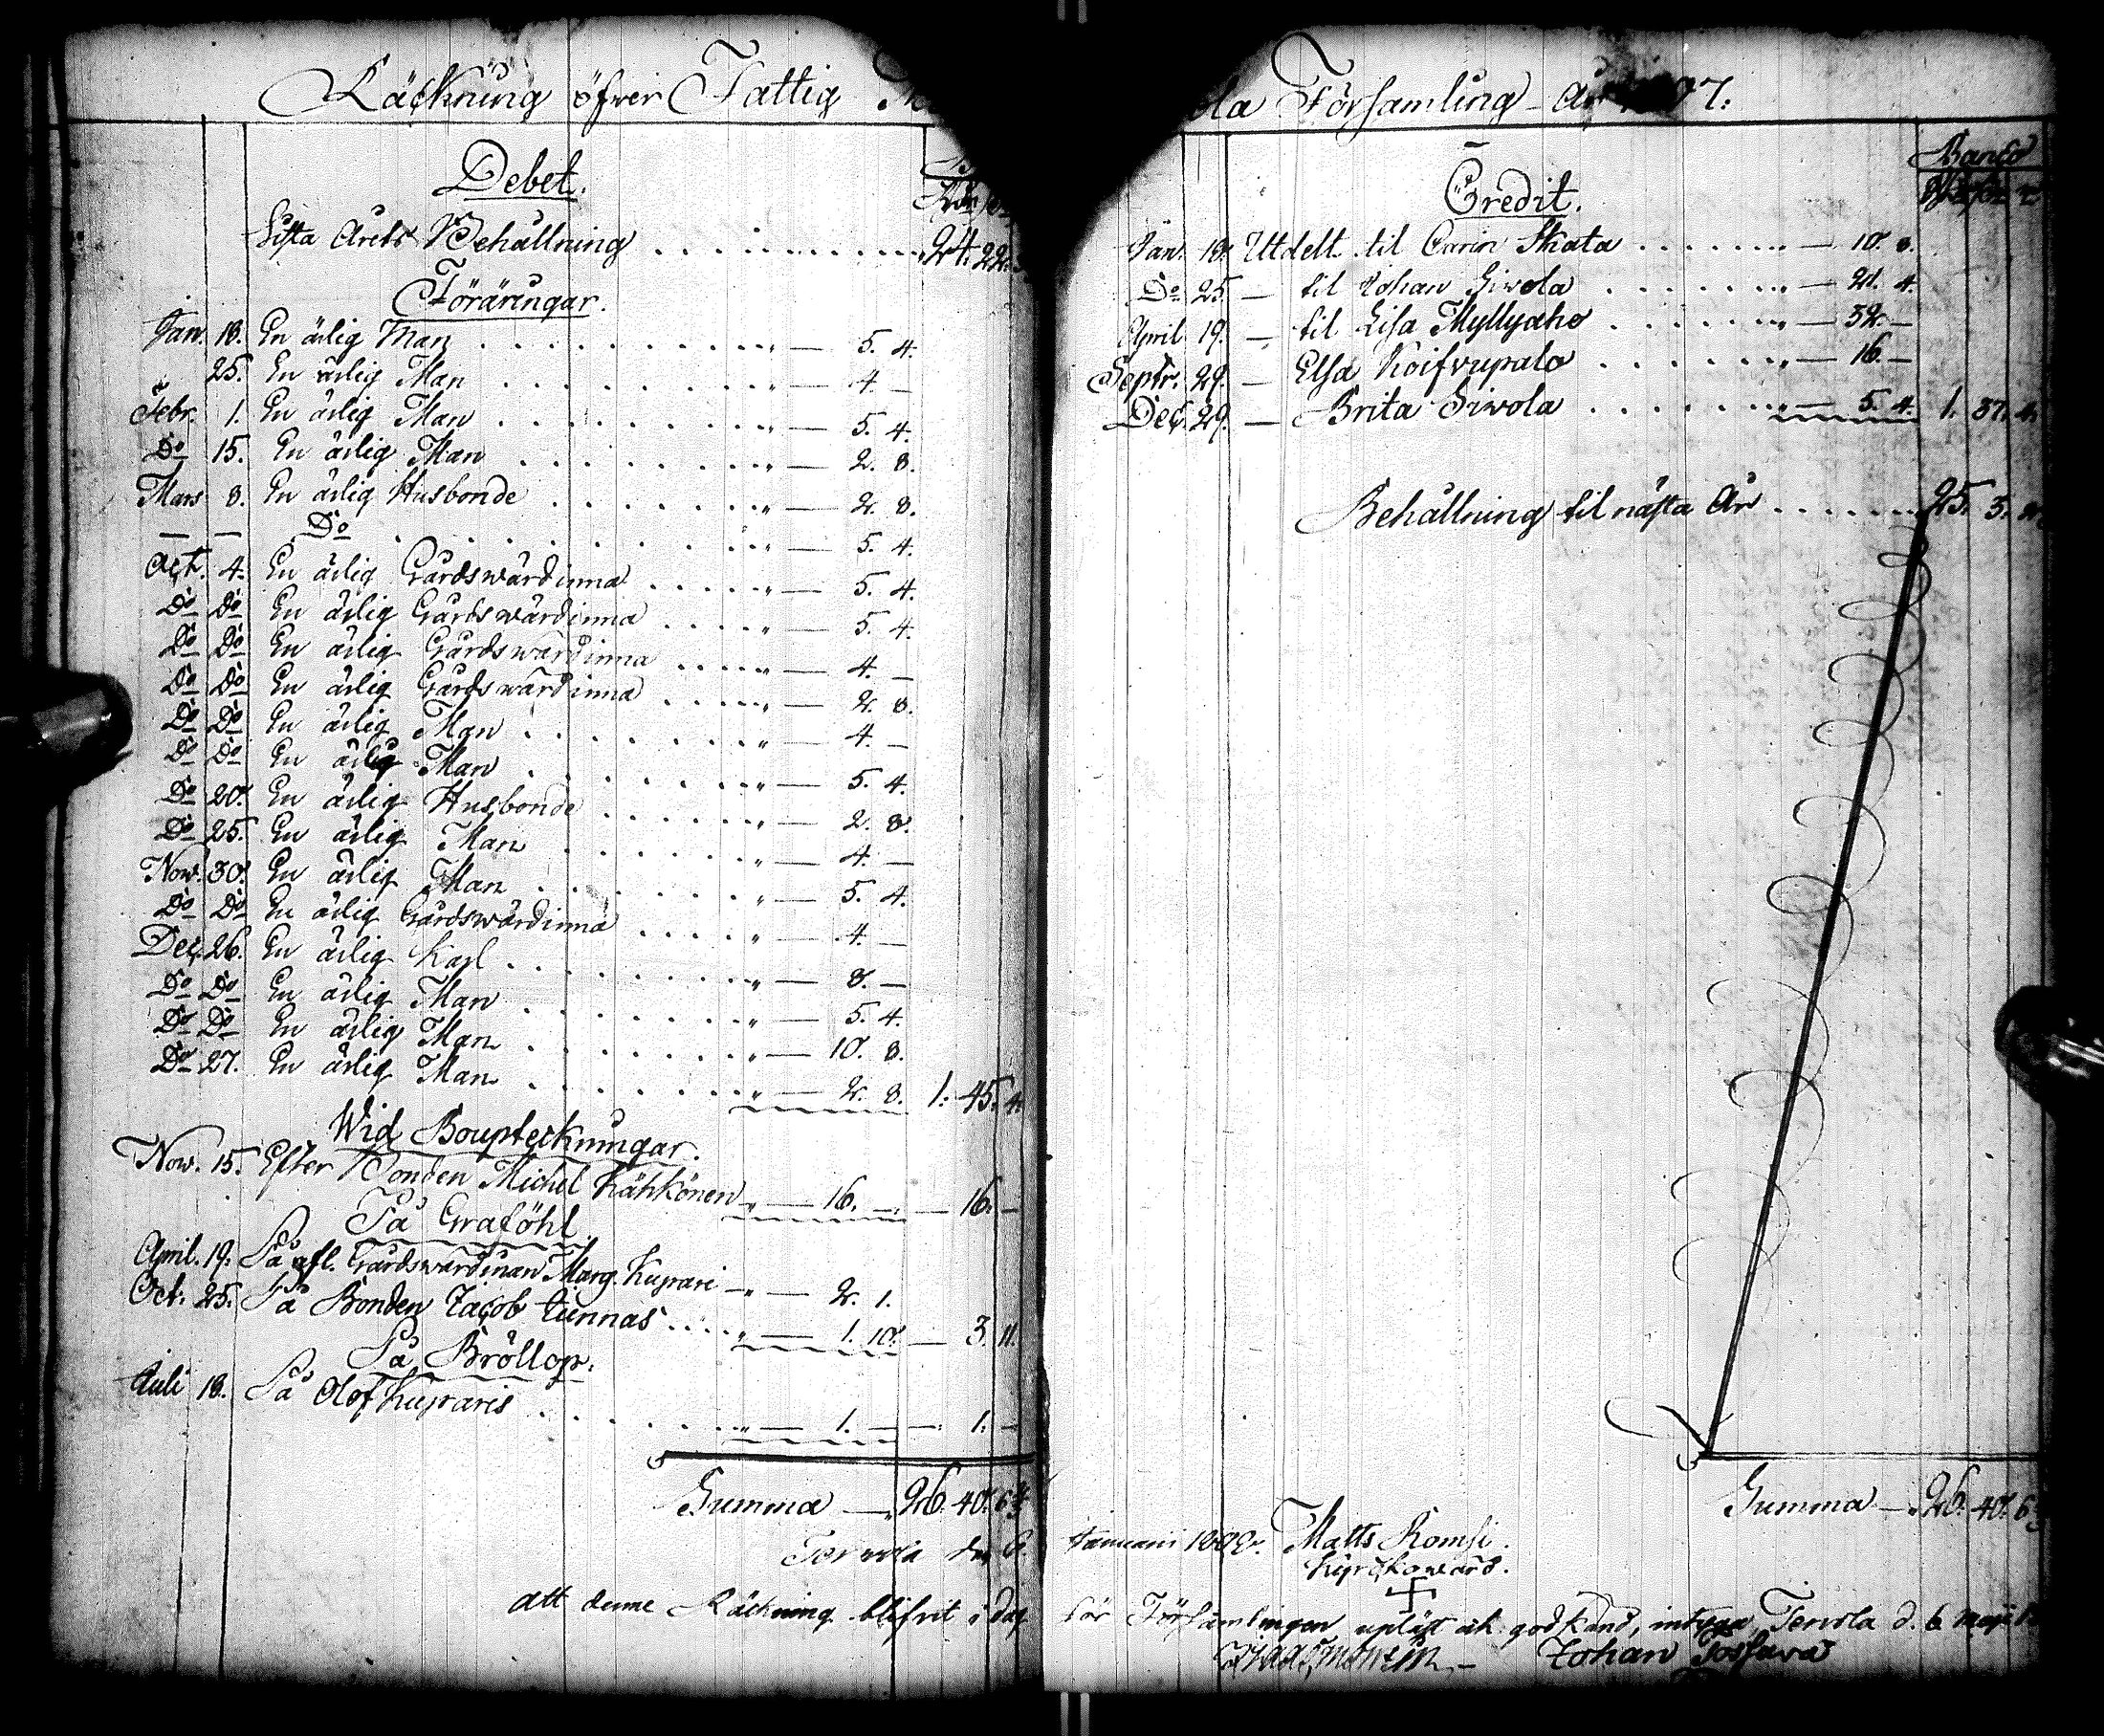 Räckning öfwer Fattig
Debet.
Sista Årets Behållning . . . 24. 22.
Föräringar.
Jan. 18. En ärlig Man . . . " — 5. 4.
25. En ärlig Man . . . " — 4. —
Febr. 1. En ärlig Man . . . " — 5. 4.
Do 15. En ärlig Man . . . " — 2. 8.
Mars 8. En ärlig Husbonde . . . " — 2. 8.
— — Do . . . " — 5. 4.
Oct. 4. En ärlig Gårdswärdinna . . . " — 5. 4.
Do Do En ärlig Gårdswärdinna . . . " — 5. 4.
Do Do En ärlig Gårdswärdinna . . . " — 4. —
Do Do En ärlig Gårdswärdinna . . . " — 2. 8.
Do Do En ärlig Man . . . " — 4. —
Do Do En ärlig Man . . . " — 5. 4.
Do 20. En ärlig Husbonde . . . " — 2. 8.
Do 25. En ärlig Man . . . " — 4. —
Now. 30. En ärlig Man . . . " — 5. 4.
Do Do En ärlig Gårdswärdinna . . . " — 4. —
Dec. 26. En ärlig Karl . . . " — 8. —
Do Do En ärlig Man . . . " — 5. 4.
Do Do En ärlig Man . . . " — 10. 8.
Do 27. En ärlig Man . . . " — 2. 8. 1. 45. 4.
Wid Boupteckningar.
Now. 15. Efter Bonden Michel Kähkönen " — 16. — — 16. —
På Graföhl
April. 19. På afl. Gårdswärdinan Marg. Kuprari — " — 2. 1.
Oct. 25. På Bonden Jacob tunnas . . . " — 1. 10. — 3. 11.
På Bröllop.
Juli 18. På Olof Kupraris . . . " — 1. — — 1. —
Summa — 26. 40. 6
Terwola den 6.
att denne Räckning blifvit i dag
ola Församling År 7.
Banco
Credit.
Jan. 18. Utdelt til Carin Skata . . . " — 10. 8.
Do 25. — til Johan Siwola . . . " — 21. 4.
April 19. — til Lisa Myllyaho . . . " — 32. —
Septr. 29. — Elsa Koifvupalo . . . " — 16. —
Dec. 29. — Brita Siwola . . . " — 5. 4. 1. 37. 4.
Behållning til nästa År . . . 25. 3.
Summa — 26. 40. 6
Januari 1808. Matts Romsi.
Kyrckowärd.
för Församlingen upläst och godkänd, intyga, Terwola d. 6 Maji
Johan